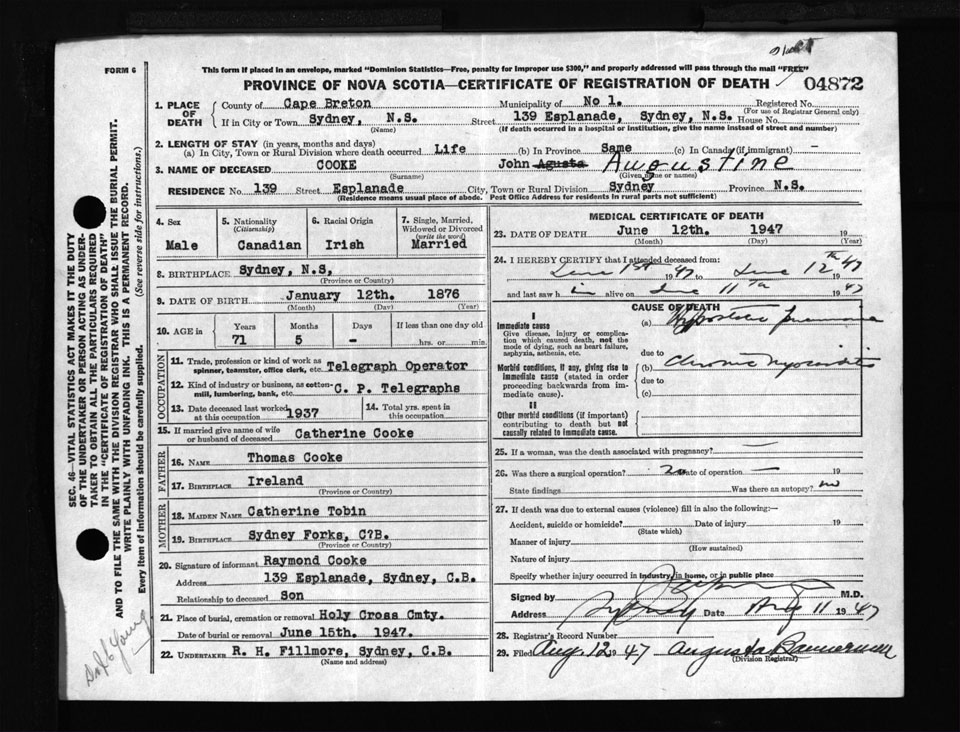 FORM 6
This form if placed in an envelope, marked "Dominion Statistics—Free, penalty for improper use $300," and properly addressed will pass through the mail "FREE"
PROVINCE OF NOVA SCOTIA—CERTIFICATE OF REGISTRATION OF DEATH 04872
1. PLACE OF DEATH
County of Cape Breton Municipality of No 1. Registered No.
(For use of Registrar General only)
If in City or Town Sydney, N.S. Street 139 Esplanade, Sydney, N.S. House No.
(Name) (If death occurred in a hospital or institution, give the name instead of street and number)
2. LENGTH OF STAY (in years, months and days)
(a) In City, Town or Rural Division where death occurred Life (b) In Province Same (c) In Canada (if immigrant) —
3. NAME OF DECEASED COOKE John Agusta Augustine
(Surname) (Given name or names)
RESIDENCE No. 139 Street Esplanade City, Town or Rural Division Sydney Province N.S.
(Residence means usual place of abode. Post Office Address for residents in rural parts not sufficient)
4. Sex Male
5. Nationality (Citizenship) Canadian
6. Racial Origin Irish
7. Single, Married, Widowed or Divorced (write the word) Married
8. BIRTHPLACE Sydney, N.S,
(Province or Country)
9. DATE OF BIRTH January 12th. 1876
(Month) (Day) (Year)
10. AGE in Years Months Days If less than one day old
71 5 - hrs. or min.
OCCUPATION
11. Trade, profession or kind of work as spinner, teamster, office clerk, etc. Telegraph Operator
12. Kind of industry or business, as cotten-mill, lumbering, bank, etc. C. P. Telegraphs
13. Date deceased last worked at this occupation 1937
14. Total yrs. spent in this occupation
15. If married give name of wife or husband of deceased Catherine Cooke
FATHER
16. NAME Thomas Cooke
17. BIRTHPLACE Ireland
(Province or Country)
MOTHER
18. MAIDEN NAME Catherine Tobin
19. BIRTHPLACE Sydney Forks, C?B.
(Province or Country)
20. Signature of informant Raymond Cooke
Address 139 Esplanade, Sydney, C.B.
Relationship to deceased Son
21. Place of burial, cremation or removal Holy Cross Cmty.
Date of burial or removal June 15th. 1947.
22. UNDERTAKER R. H. Fillmore, Sydney, C.B.
(Name and address)
MEDICAL CERTIFICATE OF DEATH
23. DATE OF DEATH June 12th. 1947 19
(Month) (Day) (Year)
24. I HEREBY CERTIFY that I attended deceased from:
June 1st 1947 to June 12th 47
and last saw h im alive on June 11th 1947
CAUSE OF DEATH
I
Immediate cause
Give disease, injury or complication which caused death, not the mode of dying, such as heart failure, asphyxia, asthenia, etc.
(a) Hypostatic Pneumonia
due to
Morbid conditions, if any, giving rise to immediate cause (stated in order proceeding backwards from immediate cause).
(b) Chronic Myocarditis
due to
(c)
II
Other morbid conditions (if important) contributing to death but not causally related to immediate cause.
25. If a woman, was the death associated with pregnancy? —
26. Was there a surgical operation? no Date of operation — 19
State findings Was there an autopsy? no
27. If death was due to external causes (violence) fill in also the following:—
Accident, suicide or homicide? Date of injury 19
(State which)
Manner of injury
(How sustained)
Nature of injury
Specify whether injury occurred in industry, in home, or in public place
Signed by M.D.
Address Sydney Date Aug 11 1947
28. Registrar's Record Number
29. Filed Aug. 12 1947 Augusta Bannerman
(Division Registrar)
SEC. 46—VITAL STATISTICS ACT MAKES IT THE DUTY
OF THE UNDERTAKER OR PERSON ACTING AS UNDER-
TAKER TO OBTAIN ALL THE PARTICULARS REQUIRED
IN THE "CERTIFICATE OF REGISTRATION OF DEATH"
AND TO FILE THE SAME WITH THE DIVISION REGISTRAR WHO SHALL ISSUE THE BURIAL PERMIT.
WRITE PLAINLY WITH UNFADING INK. THIS IS A PERMANENT RECORD.
Every item of information should be carefully supplied. (See reverse side for instructions.)